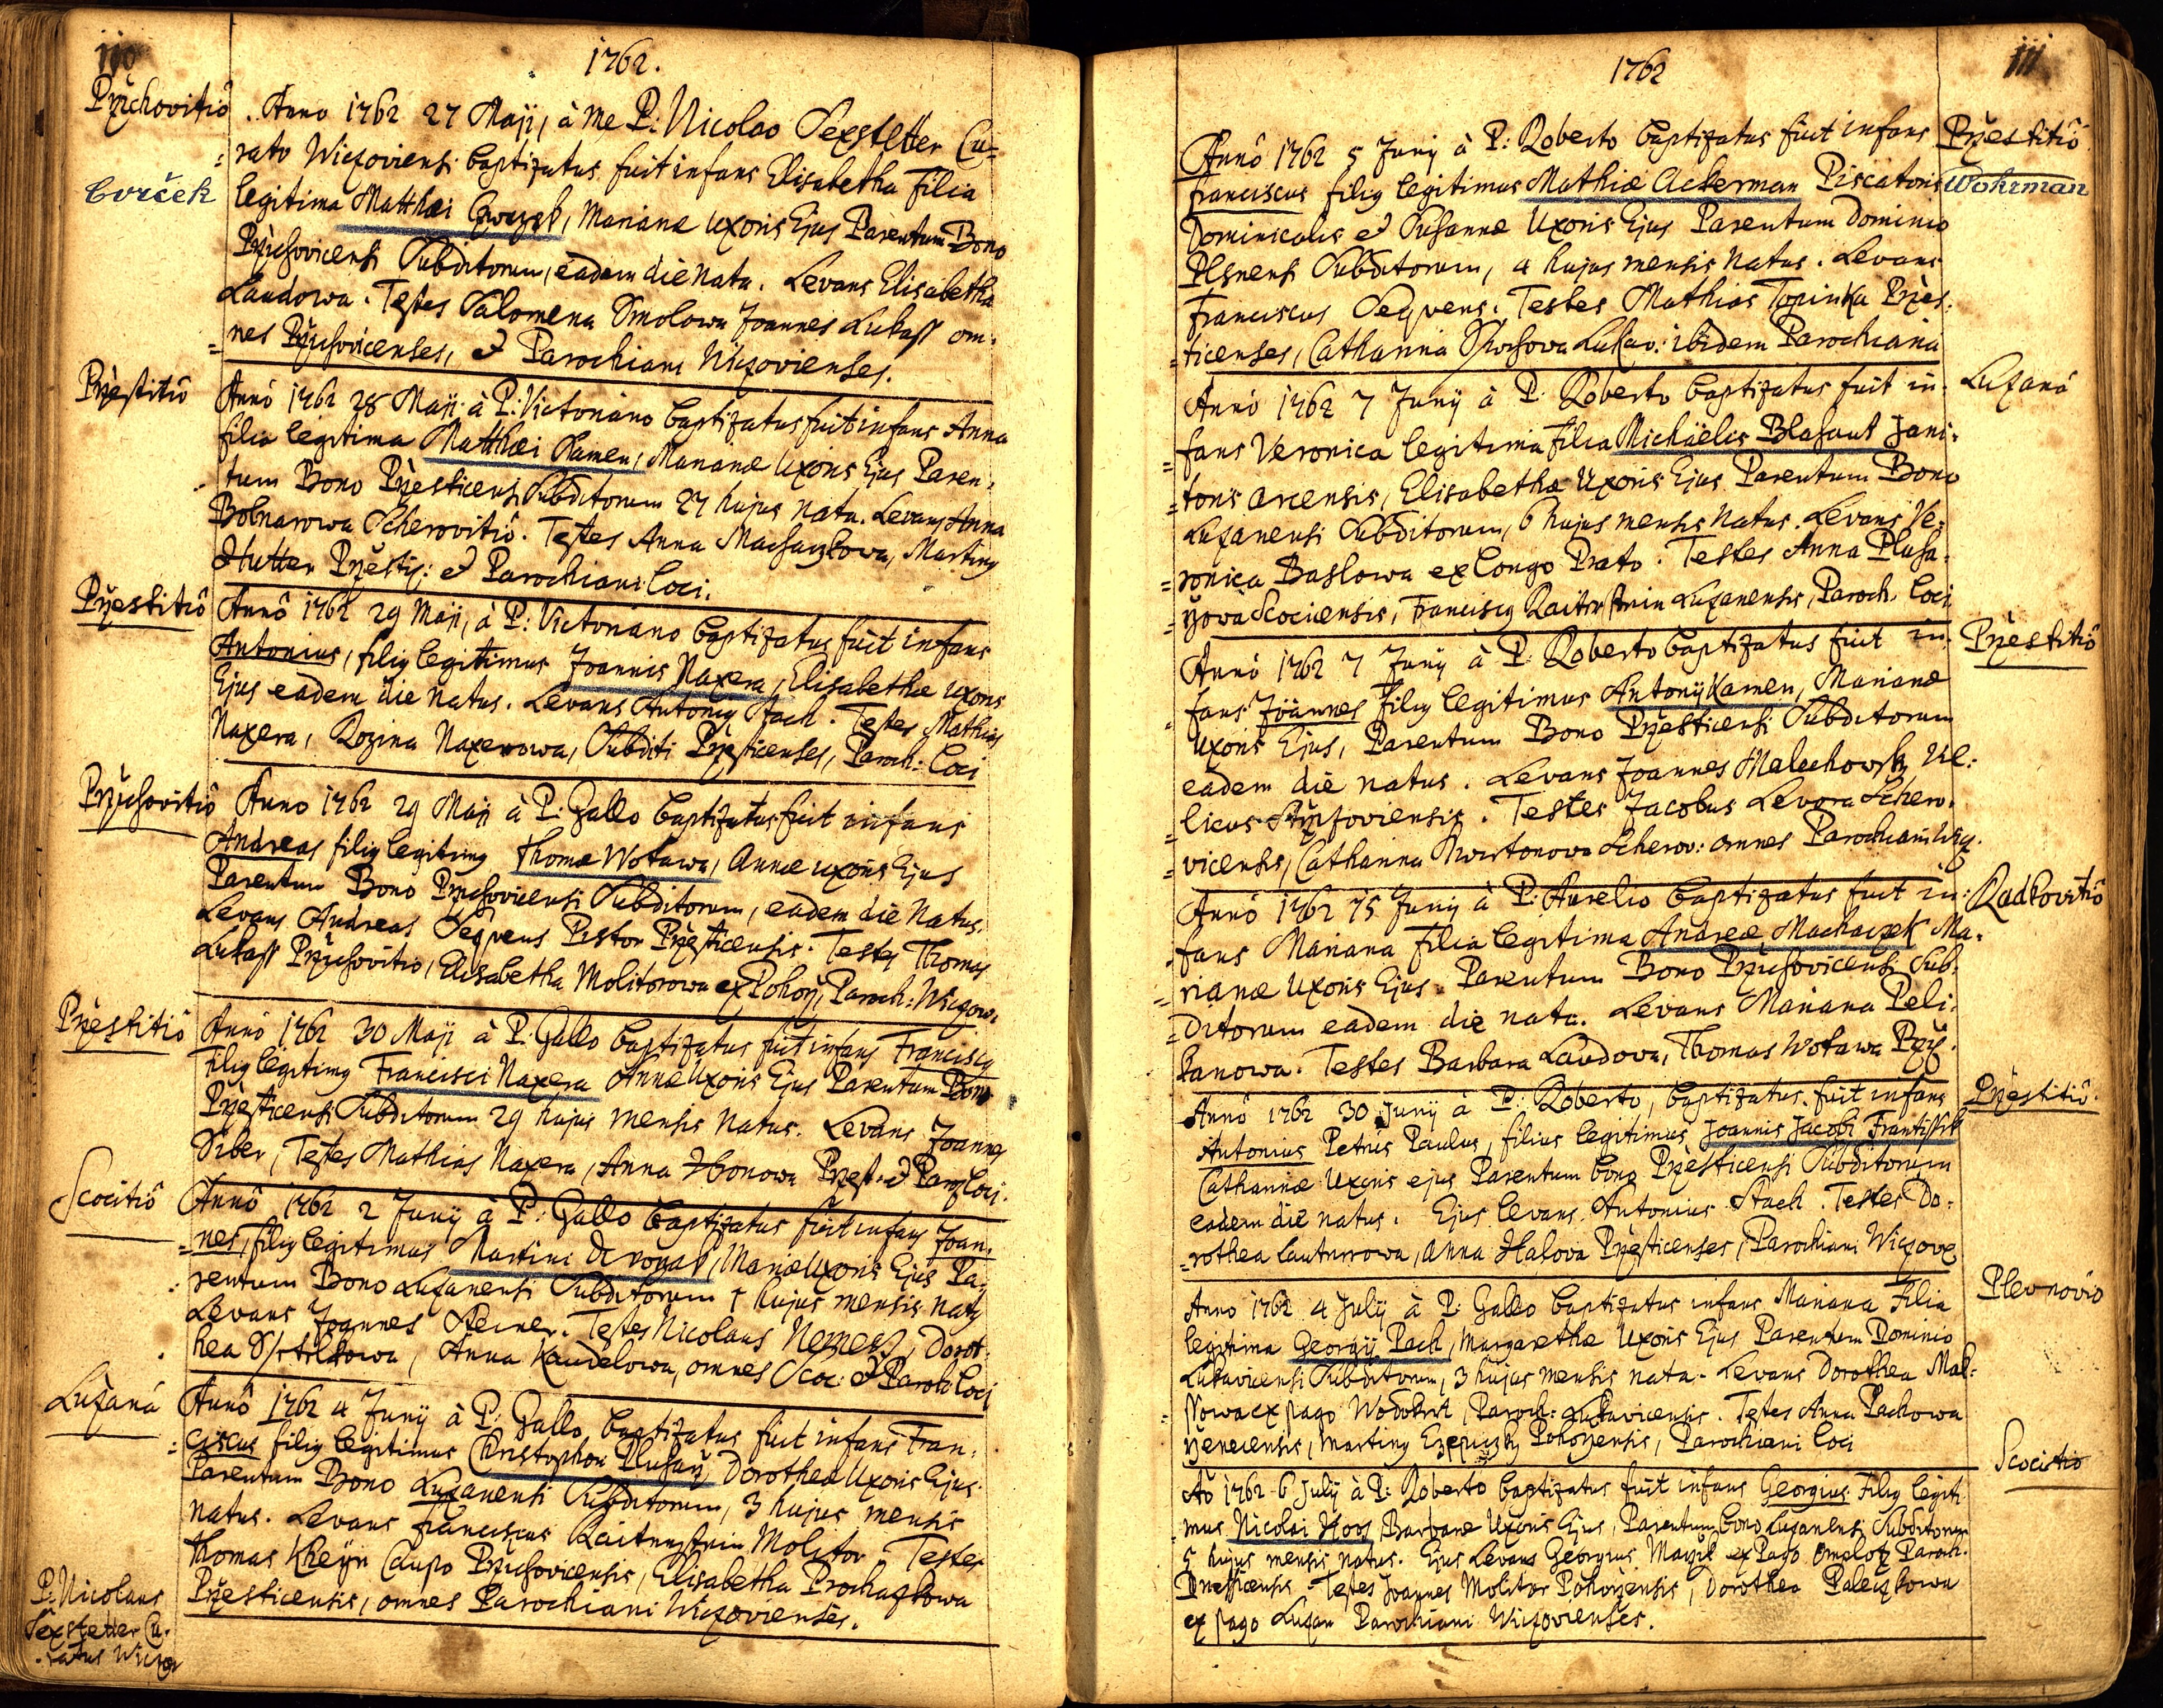 110
1762.
Przichovitiô
Cvrček
Anno 1762 27 Maji, à me P: Nicolao Sexstetter Cu=
rato Wiczoviensi baptizatus fuit infans Elisabetha Filia
legitima Matthæi Czwrczek, Marianæ Uxoris Ejus Parentum Bono
Przichovicensi Subditorum, eadem die nata. Levans Elisabetha
Laudowa. Testes Salomena Smolowa Joannes Lukass om=
nes Przichovicenses, & Parochiani Wiczovienses.
Przestitiô
Annô 1762 28 Maji à P: Victoriano baptizatus fuit infans Anna
filia legitima Matthæi Kamen, Marianæ Uxoris Ejus Paren=
tum Bono Przesticensi Subditorum 27 hujus nata. Levans Anna
Scherovitiô. Testes Anna Machaczkowa, Martinus
Hutter & Parochiani Loci.
Przestitiô
Annô 1762 29 Maji, à P: Victoriano baptizatus fuit infans
Antonius, filius legitimus Joannis Naxera, Elisabethæ Uxoris
Ejus eadem die natus. Levans Antonius Stach. Testes Mathias
Naxera, Rozina Naxerowa, Subditi Przesticenses, Paroch: Loci
Przichovitiô
Anno 1762 29 Maji à P: Gallo baptizatus fuit infans
Andreas filius legitimus Thomæ Wotawa, Annæ uxoris Ejus
Parentum Bono Przichovicensi Subditorum, eadem die Natus.
Levans Andreas Seqvens Pistor Przesticensis. Testes Thomas
Lukass Przichovitio, Elisabetha Molitorowa ex Pohorž, Paroch: Wiczov:
Przestitiô
Annô 1762 30 Maji à P: Gallo baptizatus fuit infans Franciscus
Filius legitimus Francisci Naxera Annæ Uxoris Ejus Parentum Bono
Przesticensi Subditorum 29 hujus mensis natus. Levans Joannes
Siber, Testes Mathias Naxera, Anna Przest. & Loci.
Scocitiô
Annô 1762 2 Junÿ à P: Gallo baptizatus fuit infans Joan=
nes, filius legitimus Martini Uxoris Ejus Pa=
rentum Bono Luzanensi Subditorum 1 hujus mensis natus
Levans Joannes Testes Nicolaus Dorot=
hea Anna Kaudelowa, omnes Scoc: & Paroh Loci
Luzaná
Annô 1762 4 Junÿ à P: Gallo baptizatus fuit infans Fran=
ciscus filius legitimus Christophori Dorotheæ Uxoris Ejus
Parentum Bono Luzanensi Subditorum, 3 hujus mensis
natus. Levans Franciscus Molitor Testes
Thomas Kheyn Caupo Przichovicensis, Elisabetha Prochazkowa
Przesticensis, omnes Parochiani Wiczovienses.
P. Nicolaus
Sexstetter Cu=
ratus Wiczov
1762
111
Annô 1762 5 Junÿ à P: Roberto baptizatus fuit infans
Przestitiô
Franciscus filius legitimus Mathiæ Ackerman Piscatoris
Wohrman
Dominicalis & Susannæ Uxoris Ejus Parentum Dominio
Plsnensi Subditorum, 4 hujus mensis Natus. Levans
Franciscus Seqvens. Testes Mathias Topinka Przes=
ticenses, Catharina Lukav: ibidem Parochiana
Luzanô
Annô 1762 7 Junÿ à P: Roberto baptizatus fuit in=
fans Veronica legitima filia Michäelis Blahaut Jani=
toris Arcensis, Elisabethæ Uxoris Ejus Parentum Bono
Luzanensi Subditorum, 6 hujus mensis Natus. Levans Ve=
ronica Baslowa ex Longo Prato. Testes Anna
Scociensis, Franciscus Luzanensis, Paroch Loci
Przestitiô
Annô 1762 7 Junÿ à P: Roberto baptizatus fuit in=
fans Joännes filius legitimus Antonÿ Kamen, Marianæ
Uxoris Ejus, Parentum Bono Przesticensi Subditorum
eadem die natus. Levans Joannes Malechowsky Vil=
licus. Testes Jacobus Levora Schero=
vicensis, Catharina Scherov: omnes Parochiani Wicz.
Radkovitiô
Annô 1762 15 Junÿ à P: Aurelio baptizatus fuit in=
fans Mariana Filia legitima Andreæ Machaczek Ma=
rianæ Uxoris Ejus Parentum Bono Przichovicensi Sub=
ditorum eadem die nata. Levans Mariana Peli=
kanowa. Testes Barbara Laudova, Thomas Wotawa Przi.
Przestitiô
Annô 1762 30 Junÿ à P: Roberto, baptizatus fuit infans
Antonius Petrus Paulus, filius legitimus Joannis Jacobi Frantissek
Catharinæ Uxoris ejus Parentum bono Przesticensi Subditorum
eadem die natus. Ejus levans Antonius Stach. Testes Do=
rothea Lauturrowa, Anna Halova Przesticenses, Parochiani Wiczov
Plevnoviô
Anno 1762 4 Julÿ à P: Gallo baptizatus infans Mariana Filia
legitima Georgÿ Pach, Margarethæ Uxoris Ejus Parentum Dominio
Lukavicensi Subditorum, 3 hujus mensis nata. Levans Dorothea
ex pago Wodokrt, Paroch: Lukavicensis. Testes Anna Pachowa
Martinus Pohorzensis, Parochiani Loci
Scocitiô
Aô 1762 6 Julÿ à P: Roberto baptizatus fuit infans Georgius Filius legiti
mus Nicolai Barbaræ Uxoris Ejus, Parentum bono Luzanensi Subditorum
5 hujus mensis natus. Ejus Levans Georgius ex Pago Paroch.
Testes Joannes Molitor Pohorzensis, Dorothea Paleczkowa
ex pago Luzan Parochiani Wiczovienses.